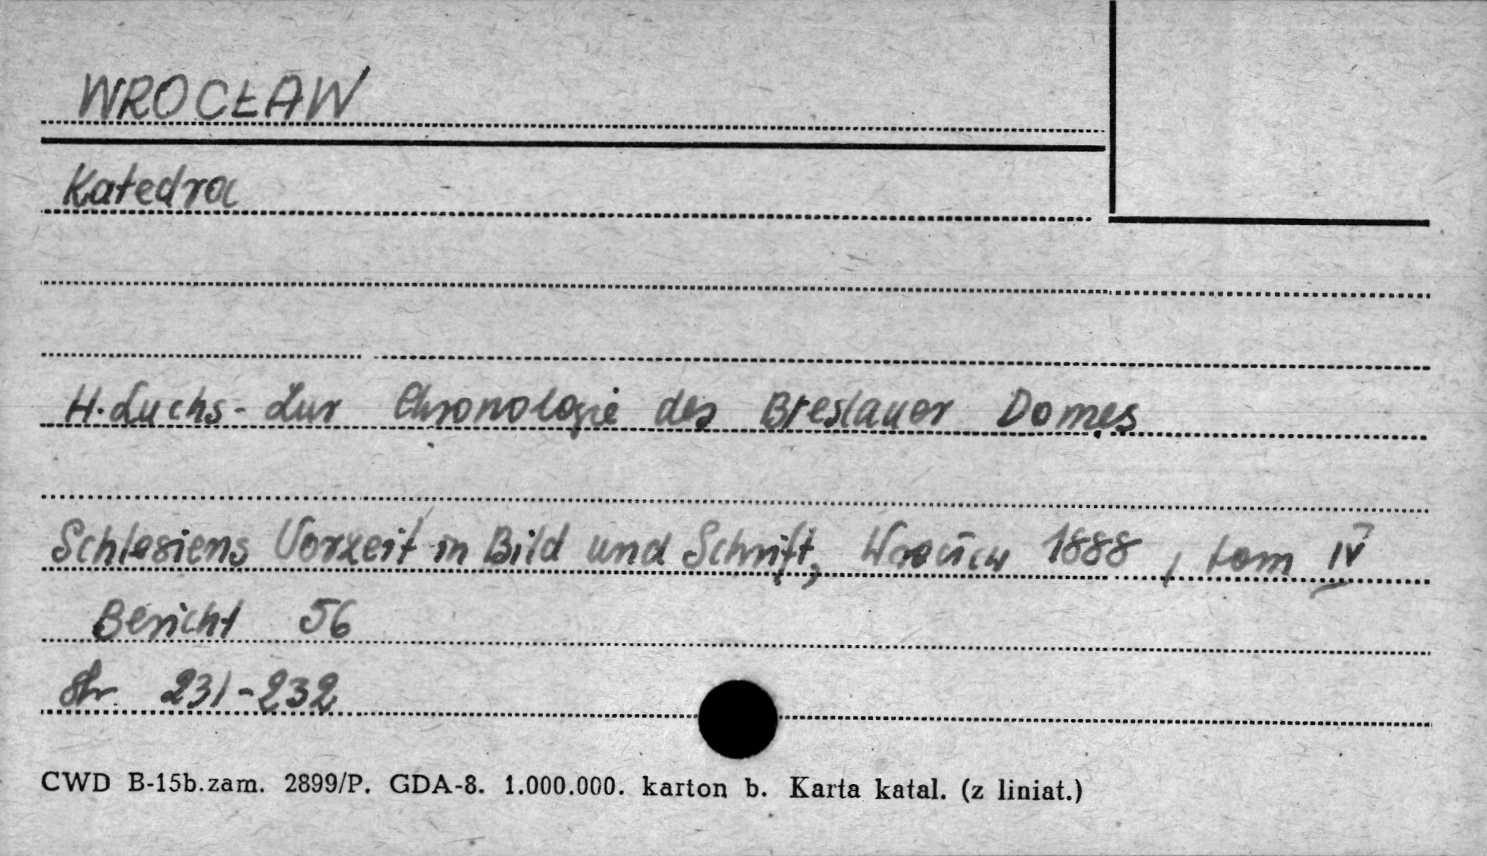 WROCŁAW
Katedra
H. Luchs - Zur Chronologie des Breslauer Domes
Schlesiens Vorzeit in Bild und Schrift, Wrocław 1888, tom IV
Bericht 56
Str. 231-232
CWD B-15b.zam. 2899/P. GDA-8. 1.000.000. karton b. Karta katal. (z liniat.)